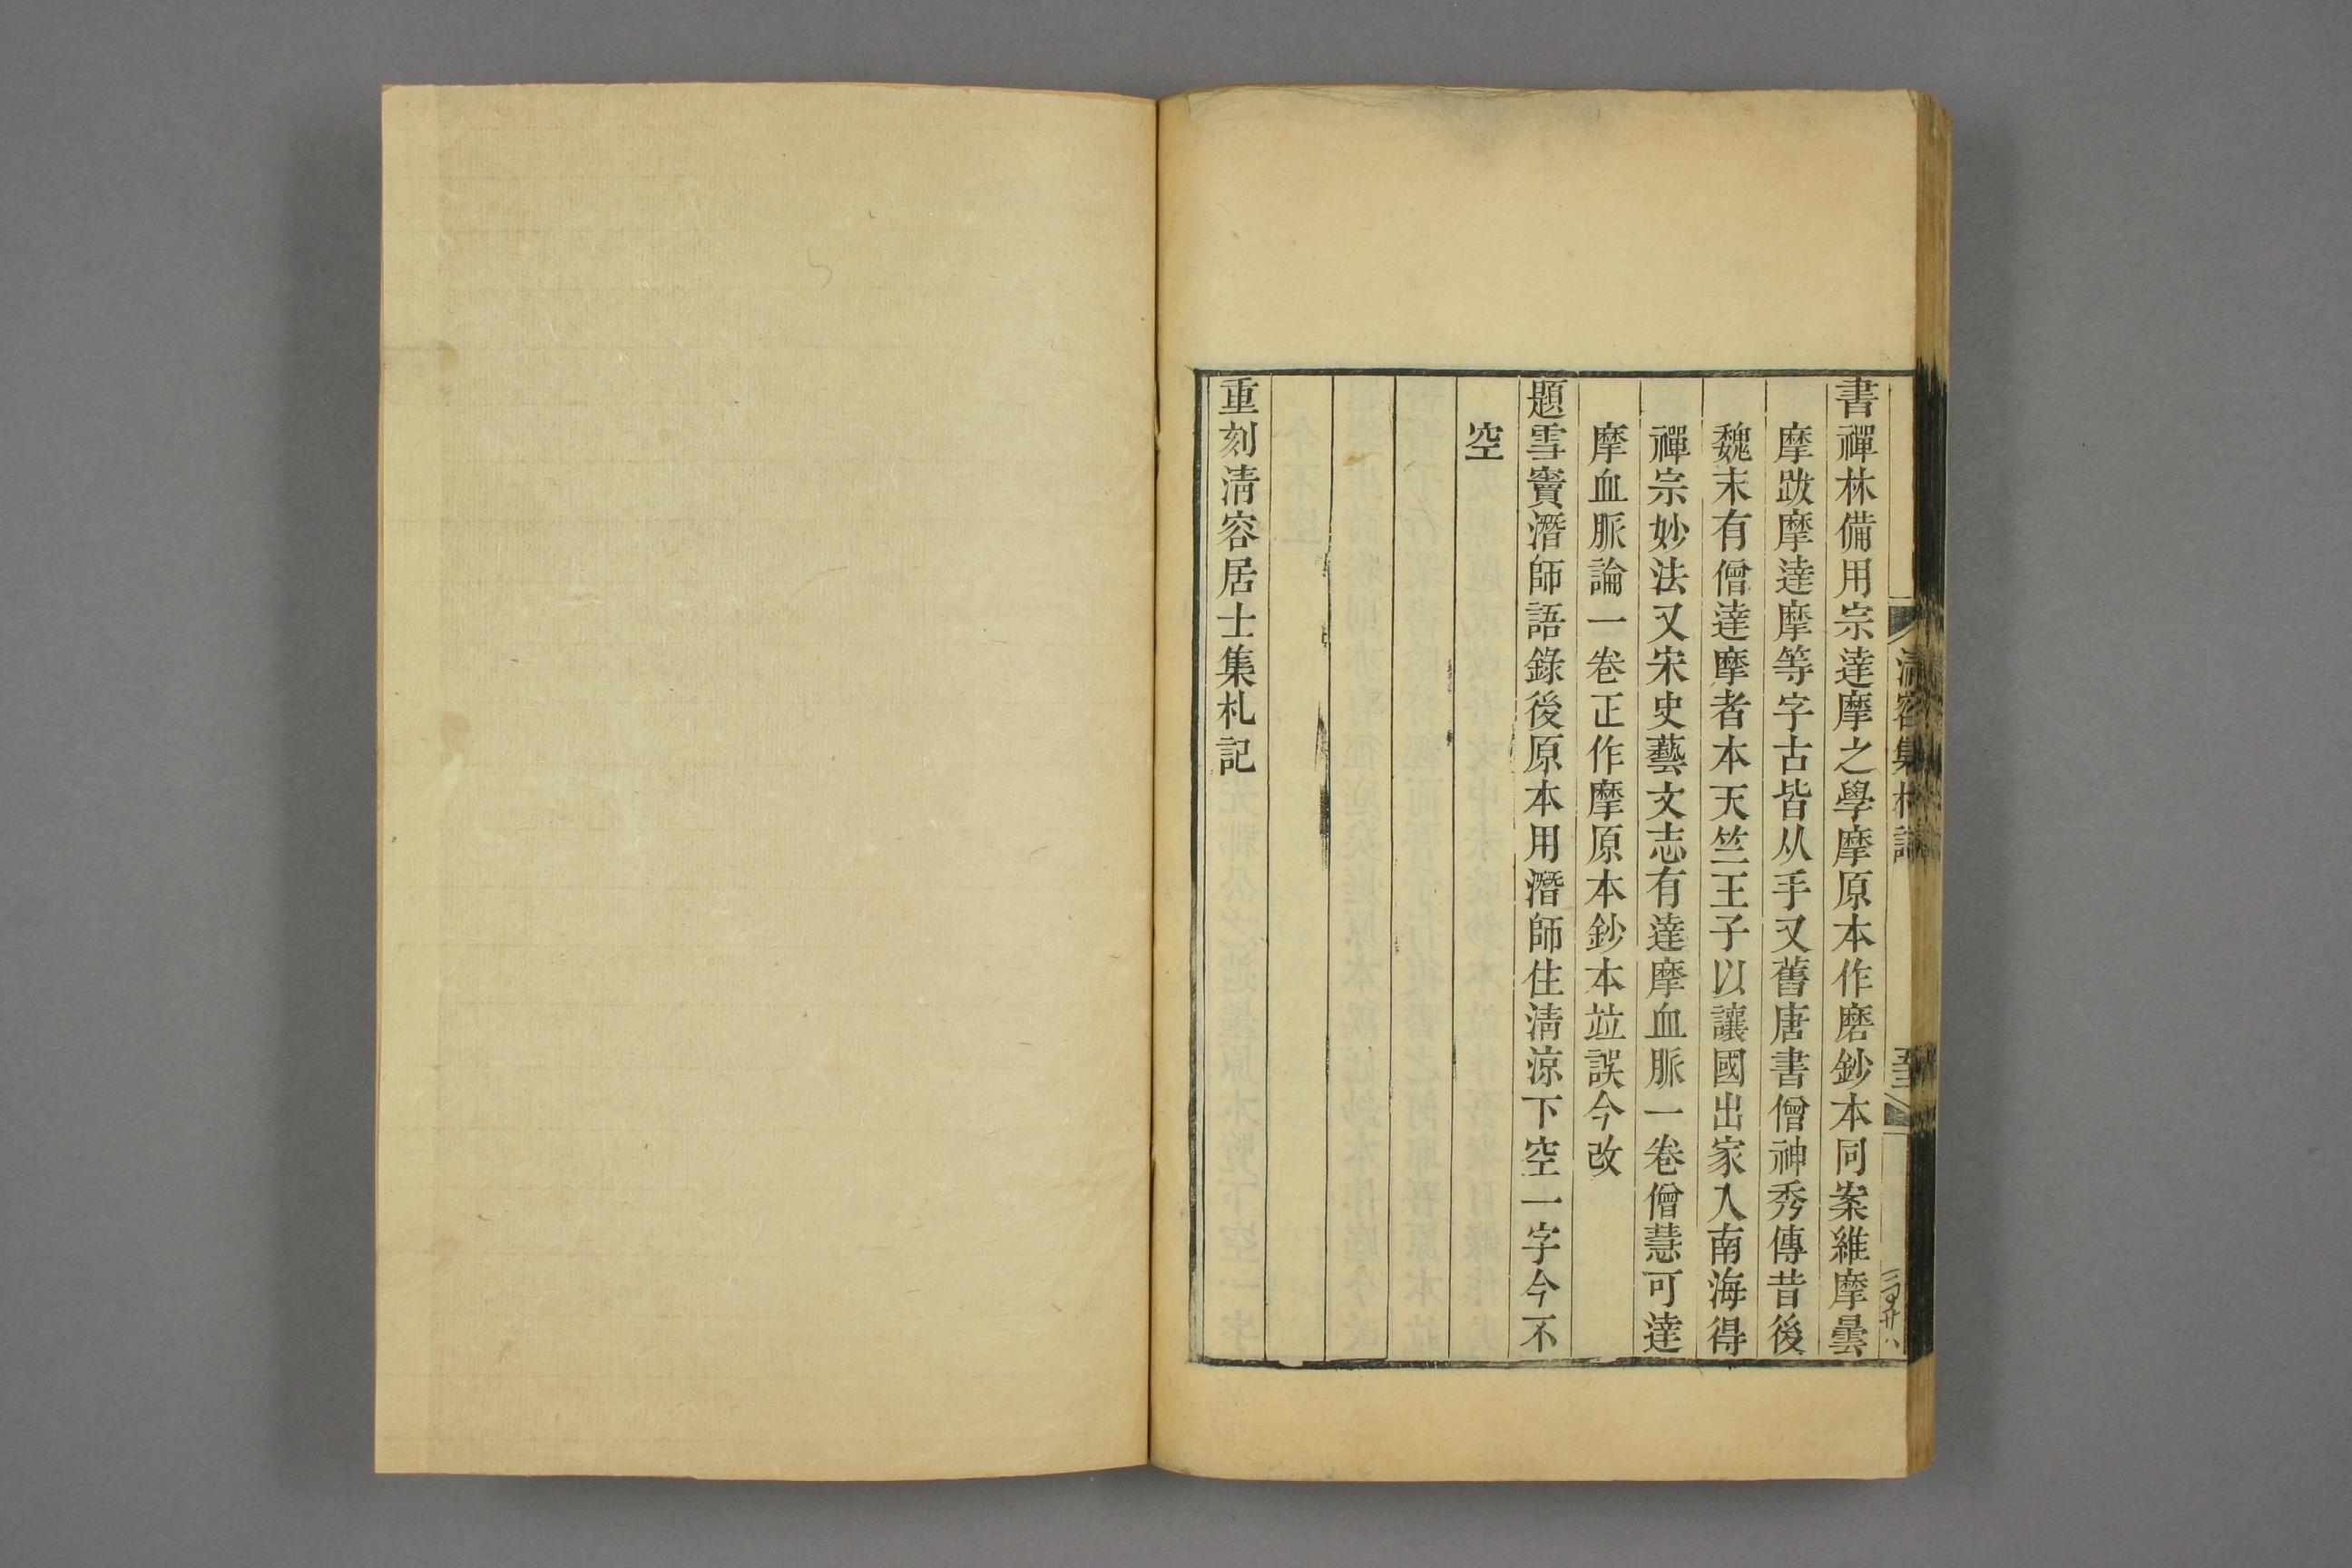 書禪林備用宗達摩之學摩原本作磨鈔本同案維摩曇
摩跋摩達摩等字古皆从手又舊唐書僧神秀傳昔後
魏末有僧達摩者本天竺王子以讓國出家入南海得
禪宗妙法又宋史藝文志有達摩血脈一卷僧慧可達
摩血脈論一卷正作摩原本鈔本竝誤今改
題雪竇潛師語錄後原本用潛師住淸涼下空一字今不
空
重刻淸容居士集札記